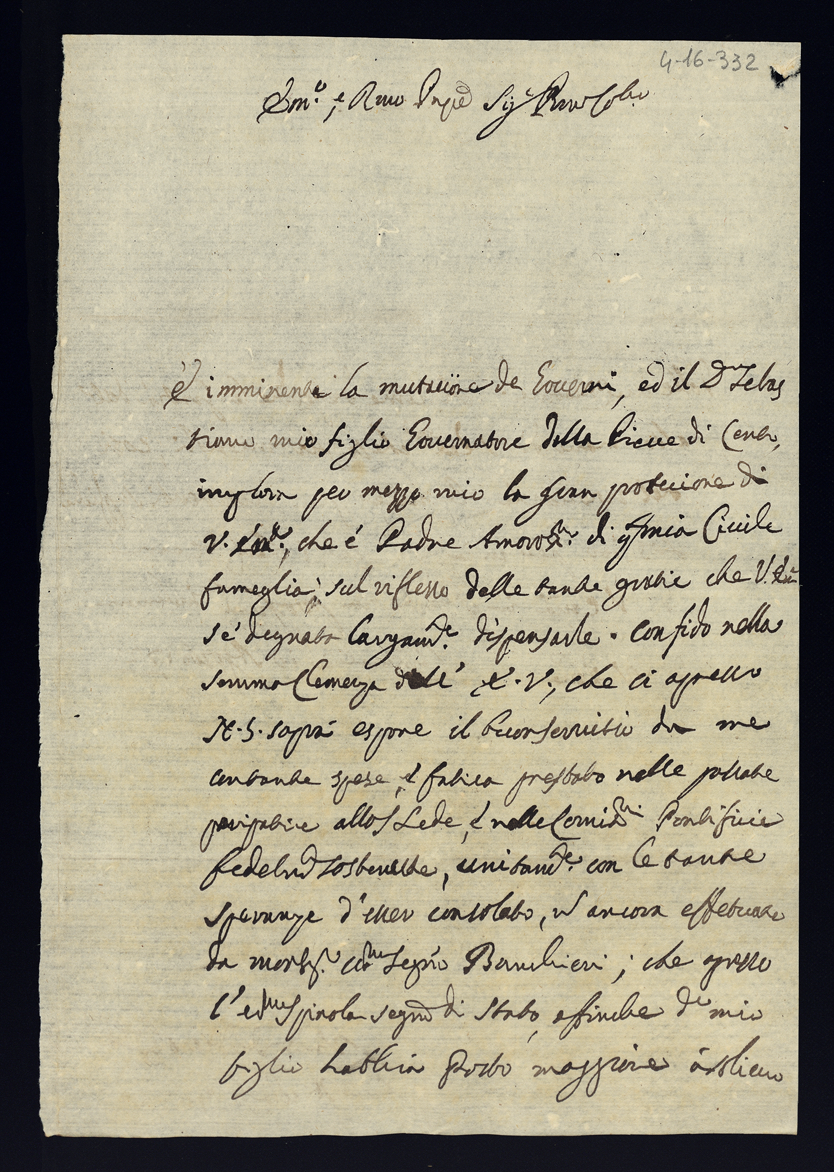 4-16-332
Em.º e Rmo Sig.r
È imminente la mutazione de Governi, ed il D.n Sebas
tiano mio figlio Governatore della Pieve di Cento,
implora per mezzo mio la gran protezione di
V. Em.ª, che é Padre Amoros.mo di mia Civile
fameglia; sul riflesso delle tante grazie che V. Em.ª
s'é degnata largam.te dispensarle. Confido nella
somma Clemenza dell' E. V., che ci apresso
N. S. saprà espore il buon servitio da me
con tante spese, é fatica prestato nelle passate
allo S Sede, é nelle Pontificie
sostenutte, unitam.te con le tante
speranze d'esser consolato, n ancora effetuate
da Segr.o Banchieri; che apresso
l' Spinola segr.o di Stato, affinche d.o mio
figlio habbia posto maggiore, ò almeno